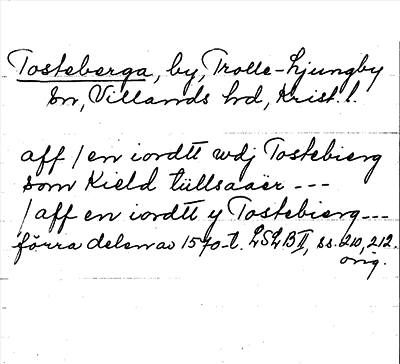 Tosteberga, by, Trolle-Ljungby
sn, Villands hd, Krist. l.
aff / en iordtt wdj Tostebierg
som Kield tüllsaaër ---
/ aff en iordtt y Tostebierg ---
förra delen av 1570-t. LSLB II, ss. 210, 212.
orig.